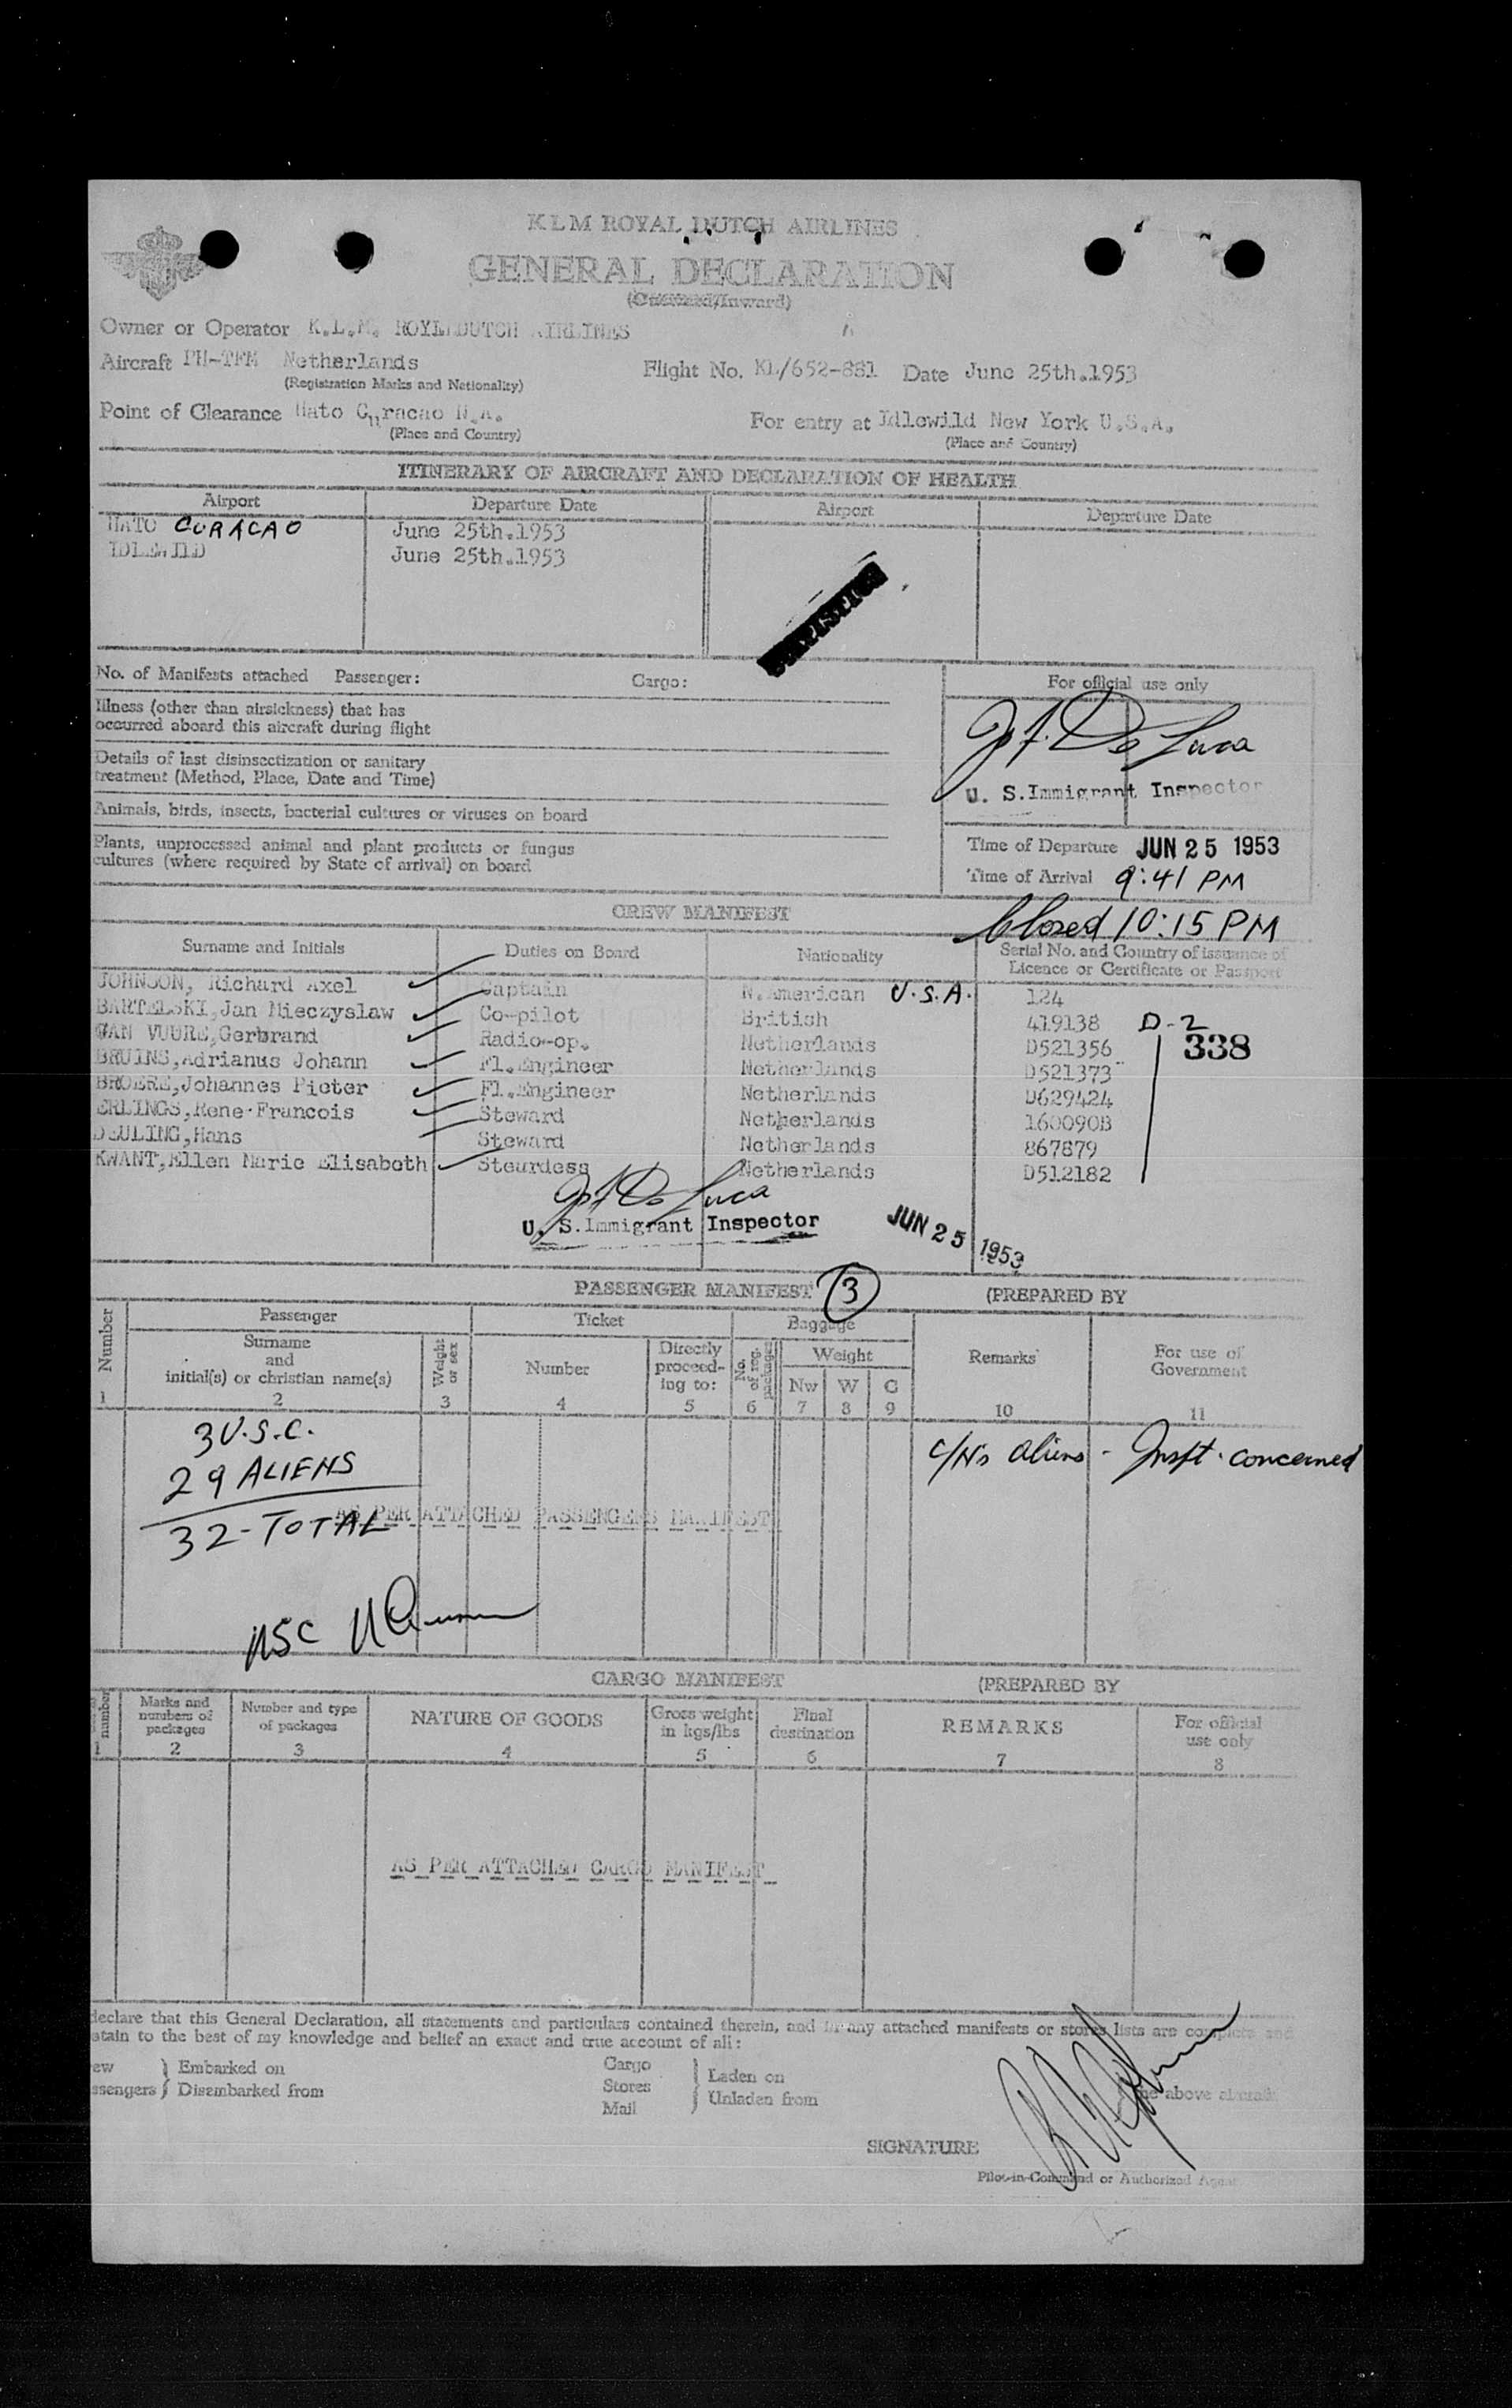 KLM ROYAL DUTCH AIRLINES
GENERAL DECLARATION
(Outward/Inward)
Owner or Operator K.L.M. ROYL DUTCH AIRLINES
Aircraft PH-TFM Netherlands Flight No. KL/652-881 Date June 25th.1953
(Registration Marks and Nationality)
Point of Clearance Hato Curacao N.A. For entry at Idlewild New York U.S.A.
(Place and Country) (Place and Country)
ITINERARY OF AIRCRAFT AND DECLARATION OF HEALTH
Airport Departure Date Airport Departure Date
HATO CURACAO June 25th.1953
IDLEWILD June 25th.1953
STATISTICS
No. of Manifests attached Passenger: Cargo: For official use only
Illness (other than airsickness) that has
occurred aboard this aircraft during flight
Details of last disinsectization or sanitary
treatment (Method, Place, Date and Time)
De Luca
U. S. Immigrant Inspector
Animals, birds, insects, bacterial cultures or viruses on board
Plants, unprocessed animal and plant products or fungus
cultures (where required by State of arrival) on board
Time of Departure JUN 25 1953
Time of Arrival 9:41 PM
Closed 10:15 PM
CREW MANIFEST
Surname and Initials Duties on Board Nationality Serial No. and Country of issuance of
Licence or Certificate or Passport
JOHNSON, Richard Axel Captain N.American U.S.A. 124
BARTELSKI,Jan Mieczyslaw Co-pilot British 419138 D-2
VAN VUURE,Gerbrand Radio-op. Netherlands D521356 338
BRUINS,Adrianus Johann Fl.Engineer Netherlands D521373
BROERE,Johannes Pieter Fl.Engineer Netherlands D629424
ERLINGS,Rene Francois Steward Netherlands 160090B
DEULING,Hans Steward Netherlands 867879
KWANT,Ellen Marie Elisabeth Steurdess Netherlands D512182
De Luca
U. S. Immigrant Inspector JUN 25 1953
PASSENGER MANIFEST 3 (PREPARED BY
Number Passenger Ticket Baggage Remarks For use of Government
Surname and initial(s) or christian name(s) Weight or sex Number Directly proceeding to: No. of reg. packages Weight
Nw W C
1 2 3 4 5 6 7 8 9 10 11
3 U.S.C.
29 ALIENS
32-TOTAL
C/Ns aliens - Inspt. concerned
AS PER ATTACHED PASSENGERS MANIFEST
CARGO MANIFEST (PREPARED BY
number Marks and numbers of packages Number and type of packages NATURE OF GOODS Gross weight in kgs/lbs Final destination REMARKS For official use only
1 2 3 4 5 6 7 8
AS PER ATTACHED CARGO MANIFEST
declare that this General Declaration, all statements and particulars contained therein, and in any attached manifests or stores lists are complete and
stain to the best of my knowledge and belief an exact and true account of all:
ew Embarked on Cargo Laden on
ssengers Disembarked from Stores Unladen from the above aircraft
Mail
SIGNATURE
Pilot-in-Command or Authorized Agent